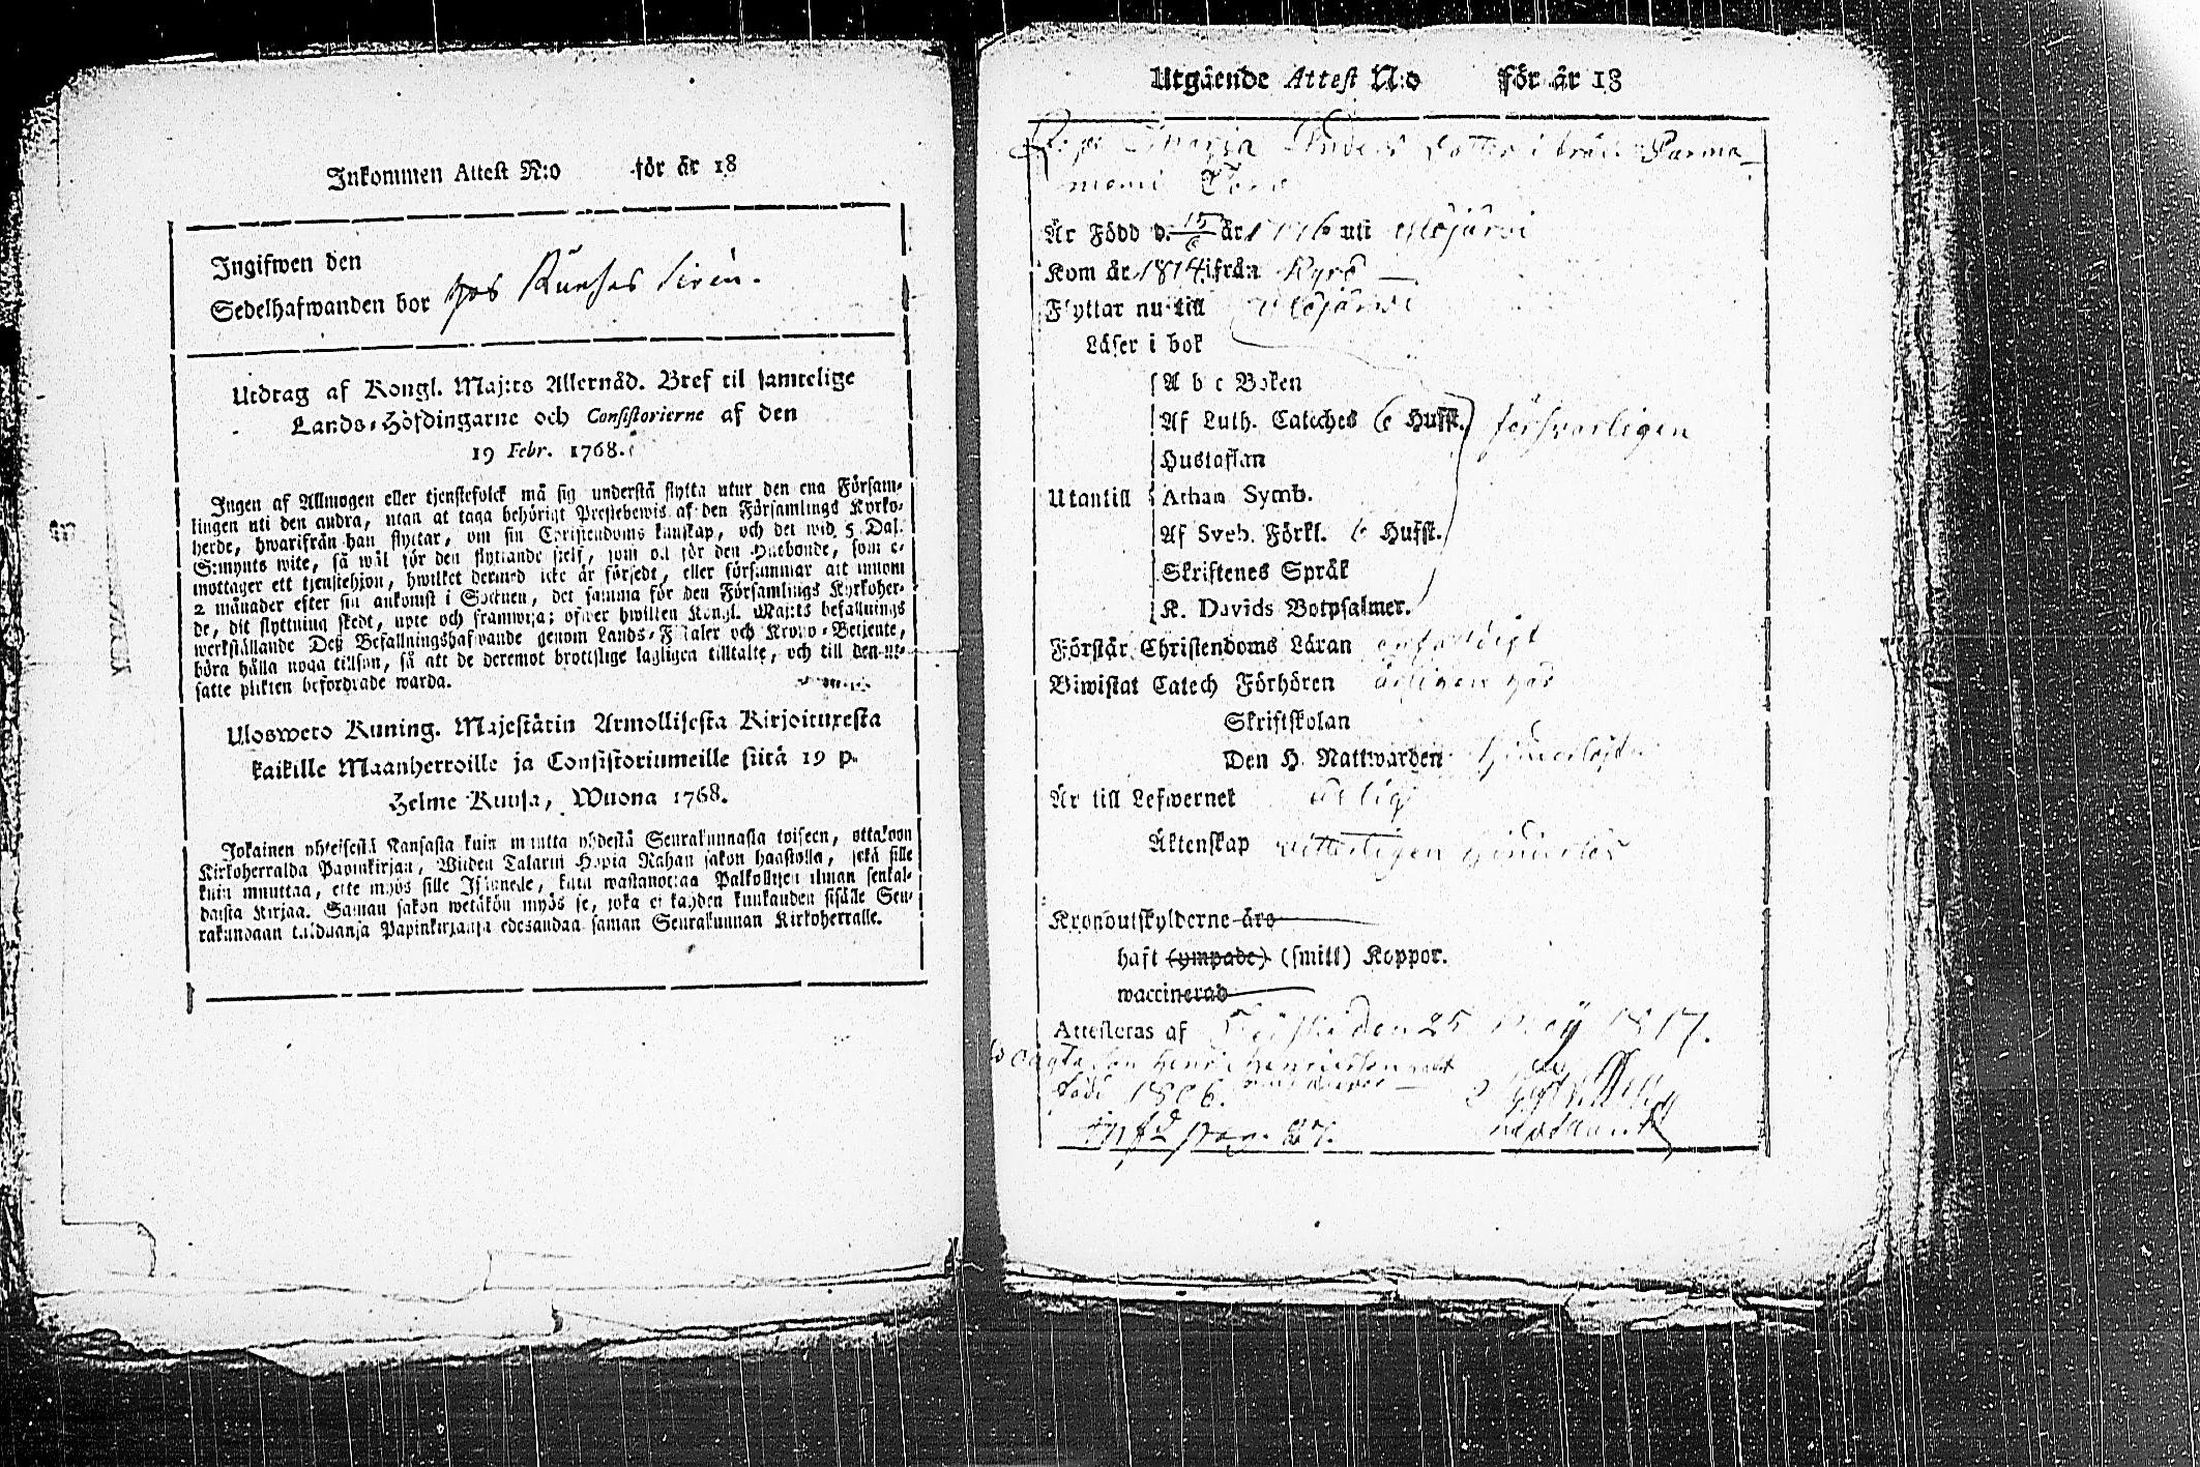 Inkommen Attest N:o för år 18
Ingifwen den
Sedelhafwanden bor hos
Utdrag af Kongl. Maj:ts Allernåd. Bref til samtelige
Lands-Höfdingarne och Consistorierne af den
19 Febr. 1768.
Ingen af Allmogen eller tjenstefolck må sig understå flytta utur den ena Försam-
lingen uti den andra, utan at taga behörigt Prestebewis af den Församlings Kyrko-
herde, hwarifrån han flyttar, om sin Christendoms kunskap, och det wid 5 Dal.
S:mynts wite, så wäl för den flyttande sjelf, som ock för den Husbonde, som e-
mottager ett tjenstehjon, hwilket dermed icke är försedt, eller försummar att innom
2 månader efter sin ankomst i Socknen, det samma för den Församlings Kyrkoher-
de, dit flyttning skedt, upte och framwisa; öfwer hwilken Kongl. Maj:ts befallnings
werkställande Deß Befallningshafwande genom Lands-Fiskaler och Krono-Betjente,
böra hålla noga tillsyn, så att de deremot brottslige lagligen tilltalte, och till den ut-
satte plikten befordrade warda.
Ulosweto Kuning. Majestätin Armollisesta Kirjoituxesta
kaikille Maanherroille ja Consistoriumeille siitä 19 p.
Helme Kuusa, Wuona 1768.
Jokainen yhteisestä Kansasta kuin muutta yhdestä Seurakunnasta toiseen, ottakoon
Kirkoherralda Papinkirjan, Wiiden Talarin Hopia Rahan sakon haastolla, sekä sille
kuin muuttaa, ette myös sille Isännelle, kuin wastanottaa Palkollisen ilman senkal-
daista Kirjaa. Saman sakon wetäkön myös se, joka ei kahden kuukauden sisälle Seu-
rakundaan tulduansa Papinkirjansa edesandaa saman Seurakunnan Kirkoherralle.
Utgående Attest N:o för år 18
Maja Anders dotter i från
Är Född d. 15 år uti Ylöjärvi
Kom år 1814 ifrån Kyrö
Flyttar nu till Ylöjärvi
Läser i bok
A b c Boken
Af Luth. Cateches 6 Hufst. försvarligen
Hustaflan
Utantill Athan Symb.
Af Sveb. Förkl. 6 Hufst.
Skriftenes Språk
K. Davids Botpsalmer.
Förstår Christendoms Läran enfaldigt
Biwistat Catech Förhören årligen här
Skriftskolan
Den H. Nattwarden
Är till Lefwernet ärlig
Äktenskap witterligen hinderlös
Kronoutskylderne äro
haft (ympade) (smitt) Koppor.
waccinerad
Attesteras af den 25 Maij 1817.
son Henric Henricsson
född 1806.
infd pag. 87.